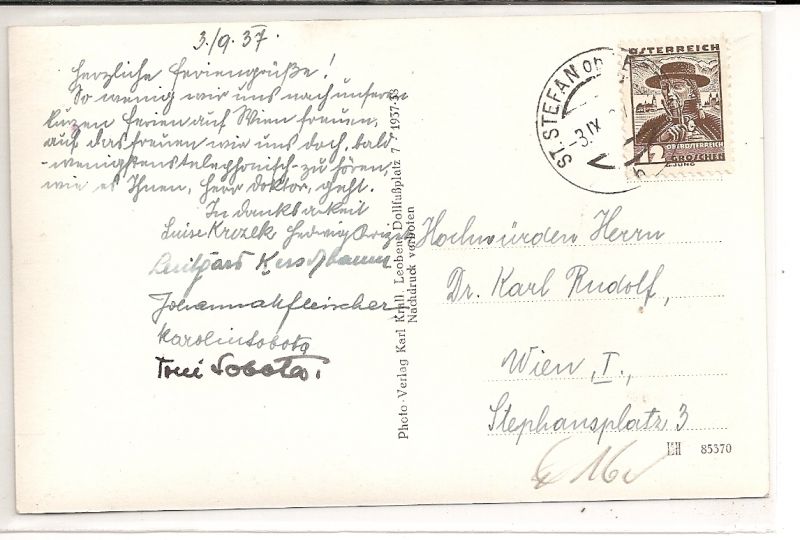 3./9.37.
Herzliche Feriengrüße!
So wenig wir uns nach unseren
kurzen Ferien auf Wien freuen,
auf das freuen wir uns doch, bald
- wenigstens telephonisch - zu hören,
wie es Ihnen, Herr Doktor, geht.
In Dankbarkeit
Luise Krczek Hedwig
Luitgard Kerschbaum
Johanna Fleischer
Karolin Sobota
Toni Sobota.
Photo-Verlag Karl Krall, Leoben, Dollfußplatz 7 / 1937-38
Nachdruck verboten
ST. STEFAN ob
-3.IX
ÖSTERREICH
OBERÖSTERREICH
12 GROSCHEN
Hochwürden Herrn
Dr. Karl Rudolf,
Wien, I.,
Stephansplatz 3
85370